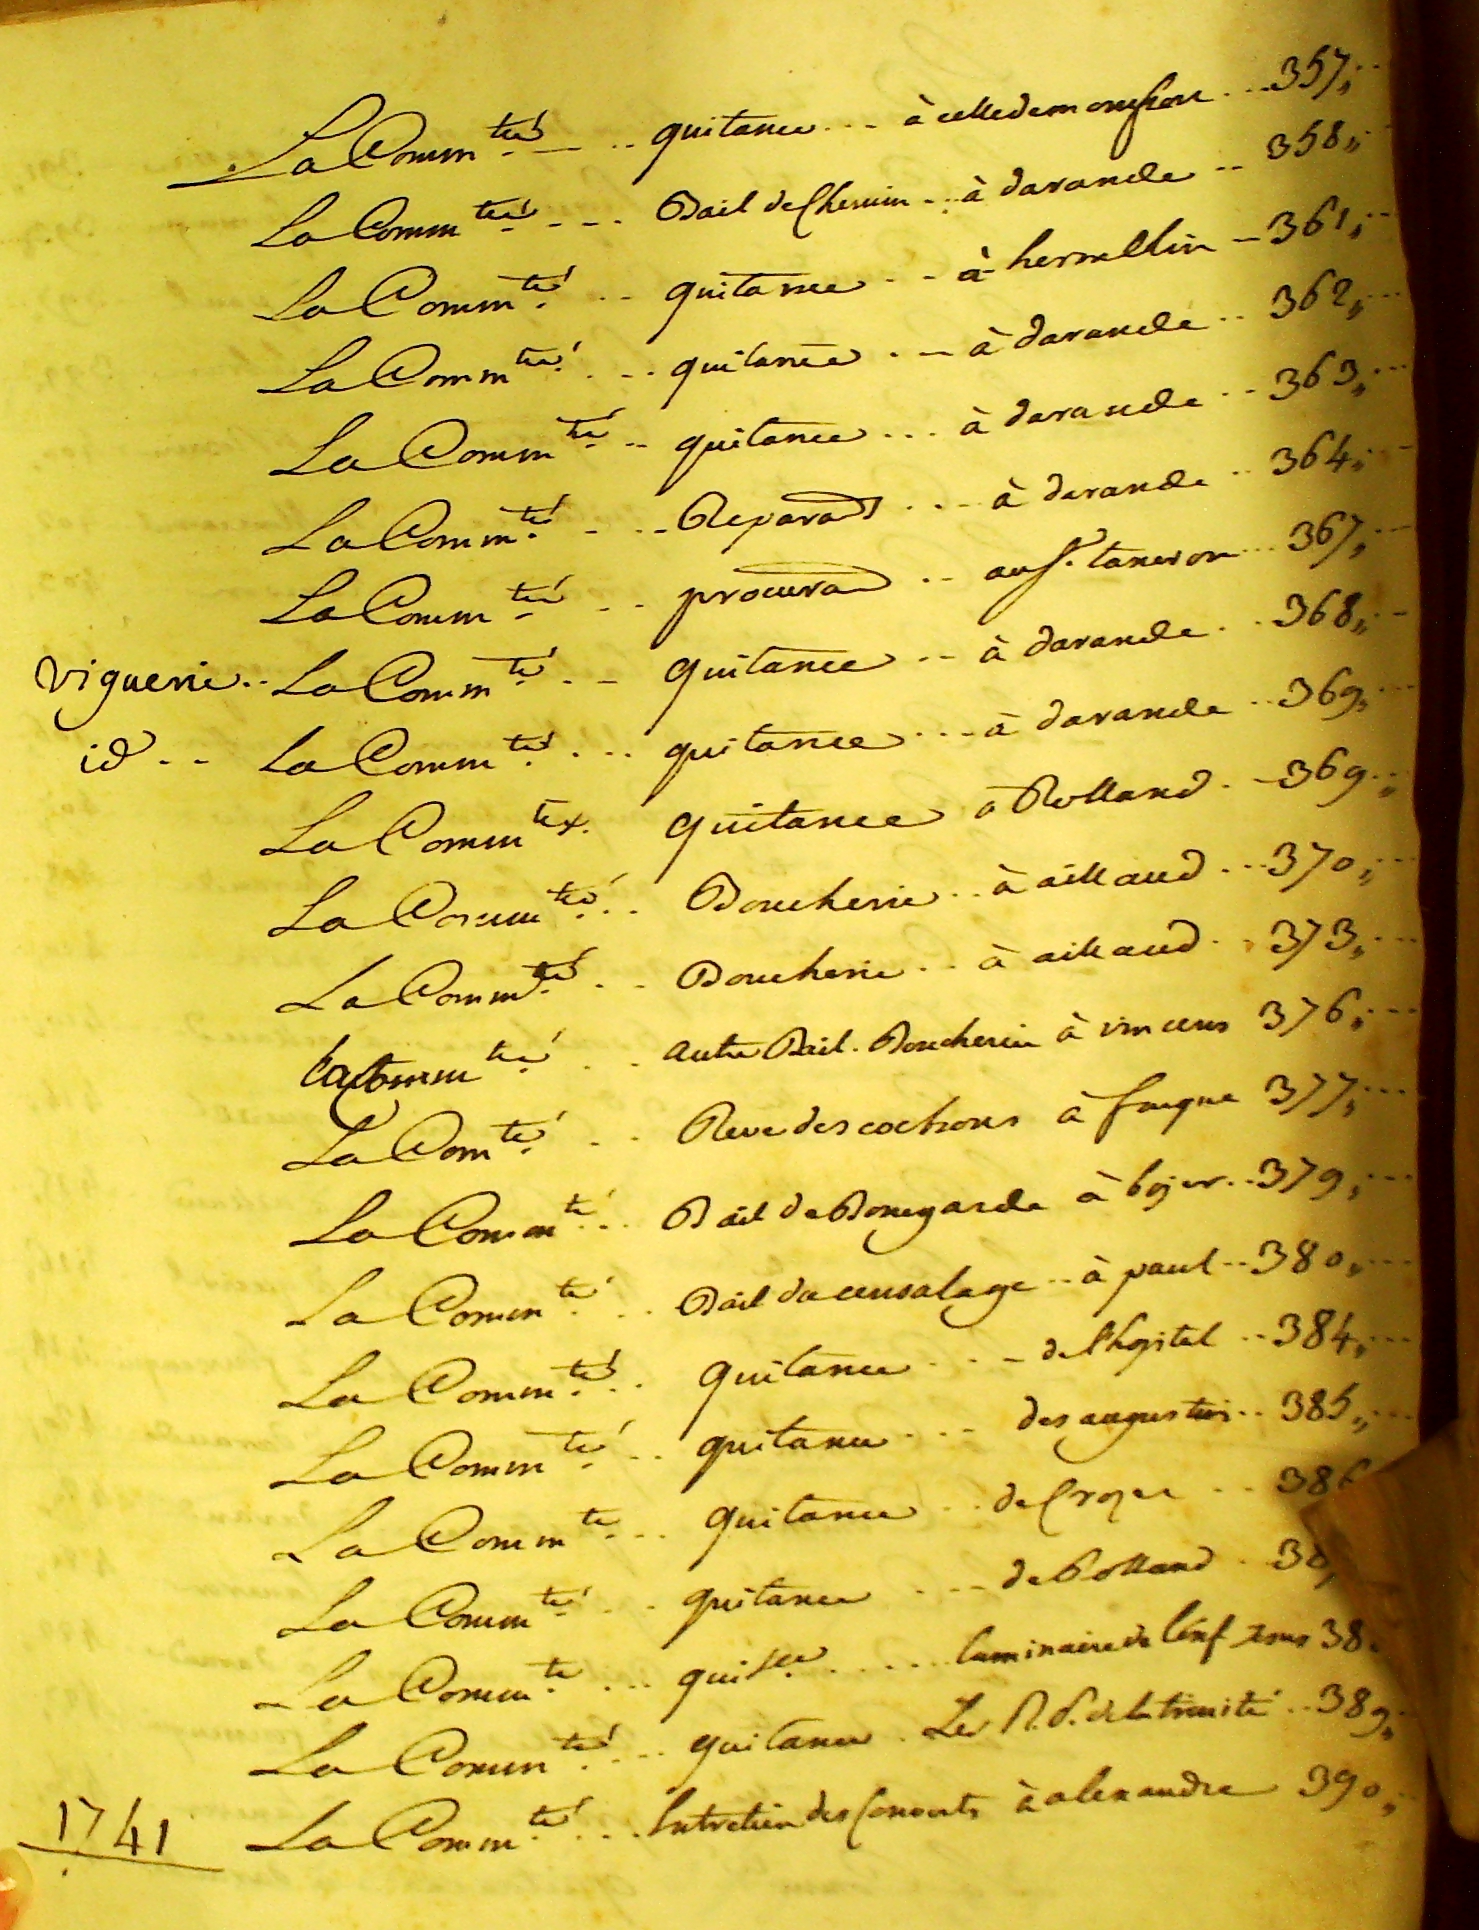 La Comm.té ... quitance ... à celle de
La Comm.té ... Bail de Chemin ... à darancle .. 358,,
La Comm.té ... quitance .. à hermellin - 361,,
La Comm.té ... quitance ... à darancle .. 362,,
La Comm.té .. quitance ... à darancle .. 363,,
La Comm.té ... Reparaõn ... à darancle .. 364,,
La Comm.té ... procuraõn .. au sr. taneron ... 367,,
viguerie .. La Comm.té .. quitance .. à darancle .. 368,,
id .. La Comm.té ... quitance ... à darancle .. 369,,
La Comm.té x. quitance à Rolland . - 369,,
La Comm.té .. Boucherie .. à aillaud ... 370,,
La Comm.té .. Boucherie .. à aillaud .. 373,,
La Comm.té .. autre Bail . Boucherie à vincens 376,,
La Com.té .. Reve des cochons à fouque 377,,
La Comm.té ... Bail de Bouygarde à boyer .. 379,,
La Comm.té .. Bail du censalage .. à paul .. 380,,
La Comm.té .. quitance ... de l'hopital .. 384,,
La Comm.té .. quitance ... des augustins .. 385,,
La Comm.té ... quitance .. de Crozet .. 386
La Comm.té .. quitance ... de Rolland . 38
La Comm.té ... quit.ce ..... luminaire de l'enf Jesus 38
La Comm.té ... quitance . Les R. P. de la trinité .. 389,,
1741 La Comm.té ... Entretien des Conduits à alexandre 390,,